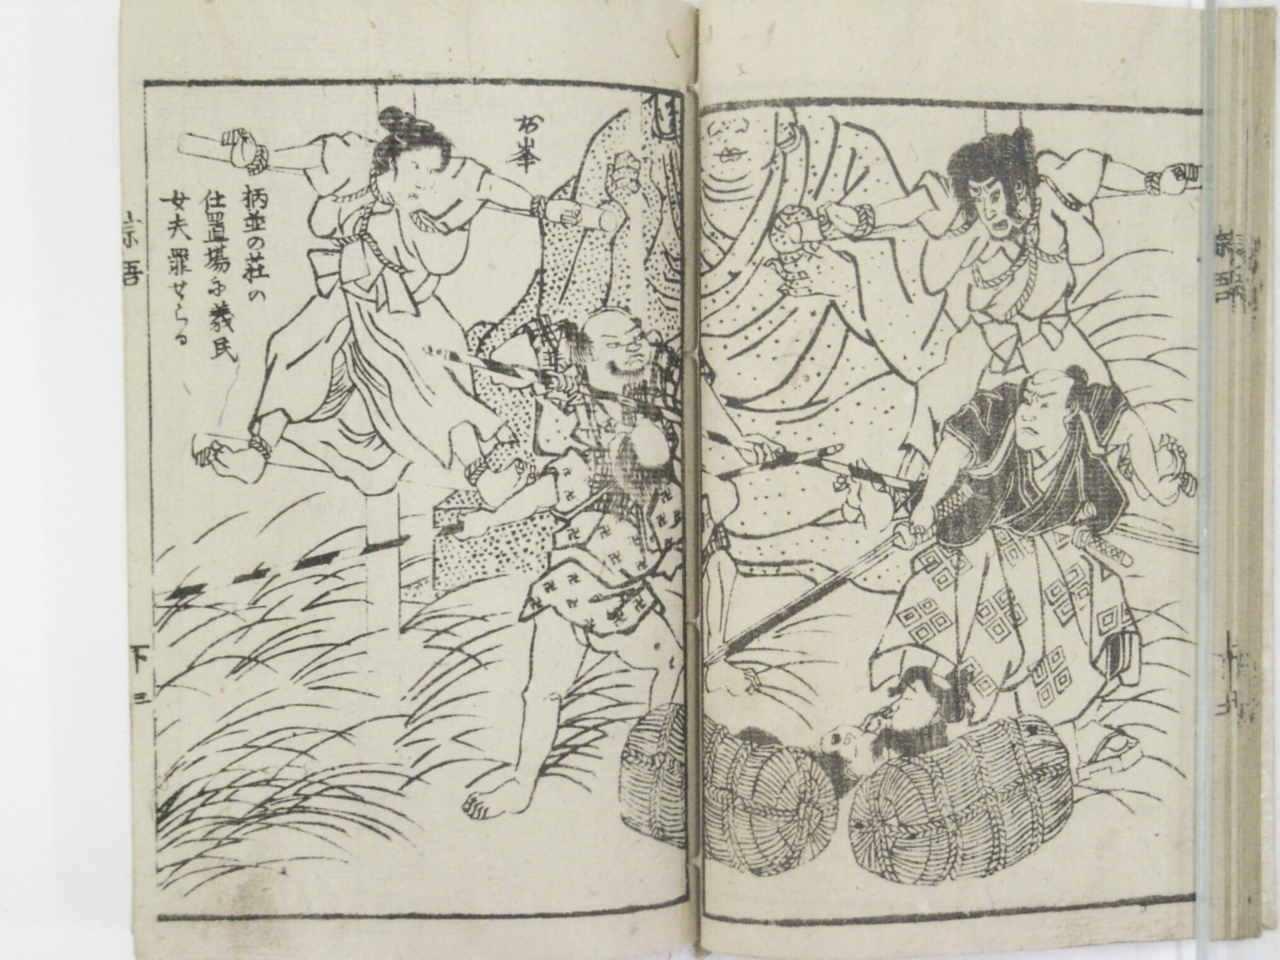 お峯
柄並の荘の
仕置場に義民
女夫罪せらる
宗吾
下三